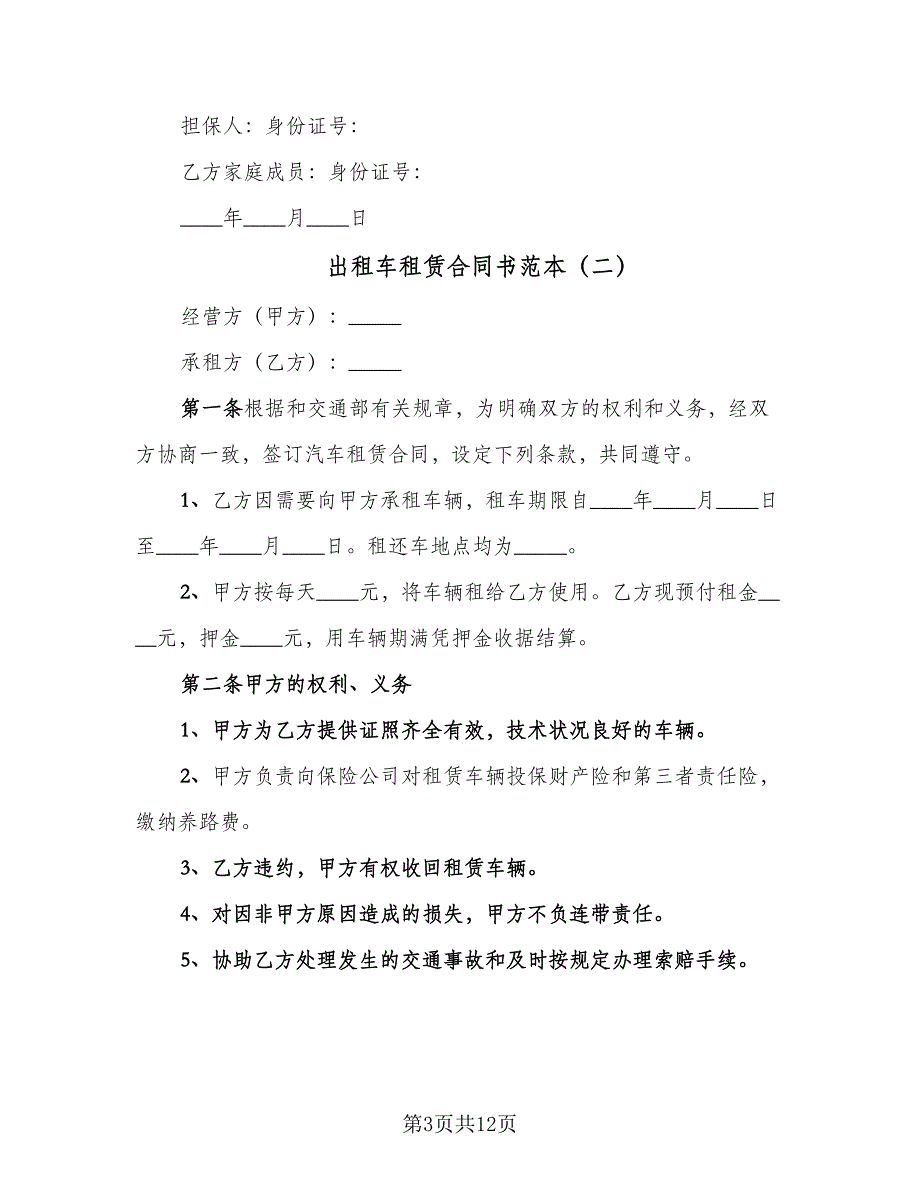 担保人：身份证号：
乙方家庭成员：身份证号：
____年____月____日
出租车租赁合同书范本（二）
经营方（甲方）：_____
承租方（乙方）：_____
第一条根据和交通部有关规章，为明确双方的权利和义务，经双
方协商一致，签订汽车租赁合同，设定下列条款，共同遵守。
1、乙方因需要向甲方承租车辆，租车期限自____年____月____日
至____年____月____日。租还车地点均为_____。
2、甲方按每天____元，将车辆租给乙方使用。乙方现预付租金__
__元，押金____元，用车辆期满凭押金收据结算。
第二条甲方的权利、义务
1、甲方为乙方提供证照齐全有效，技术状况良好的车辆。
2、甲方负责向保险公司对租赁车辆投保财产险和第三者责任险，
缴纳养路费。
3、乙方违约，甲方有权收回租赁车辆。
4、对因非甲方原因造成的损失，甲方不负连带责任。
5、协助乙方处理发生的交通事故和及时按规定办理索赔手续。
第3页共12页